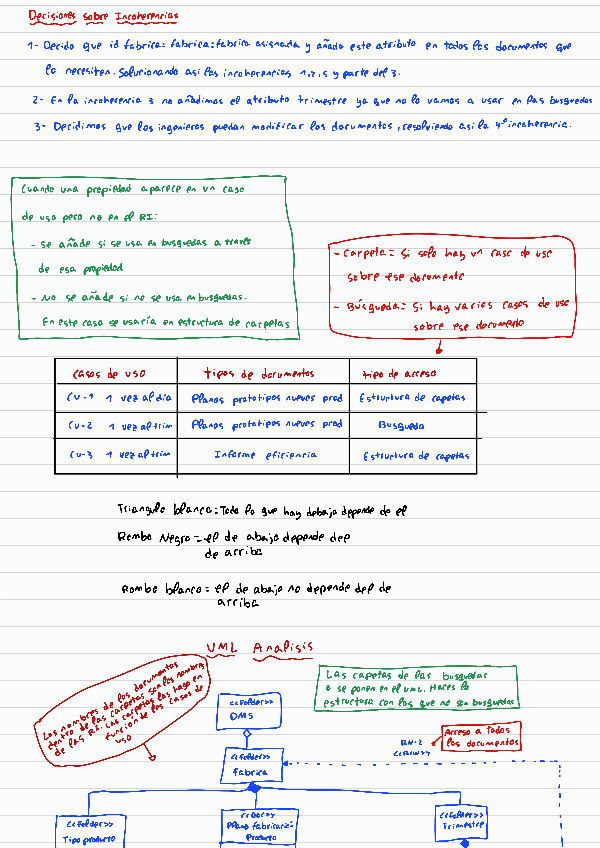 Decisiones sobre Incoherencias
1- Decido que id fabrica = fabrica = fabrica asignada y añado este atributo en todos los documentos que
lo necesiten. Solucionando asi las incoherencias 1,2,5 y parte del 3.
2- En la incoherencia 3 no añadimos el atributo trimestre ya que no lo vamos a usar en las busquedas
3- Decidimos que los ingenieros puedan modificar los documentos, resolviendo asi la 4º incoherencia.
Cuando una propiedad aparece en un caso
de uso pero no en el RI:
- Se añade si se usa en busquedas a través
de esa propiedad
- No se añade si no se usa en busquedas.
En este caso se usaría en estructura de carpetas
- Carpeta = Si solo hay un caso de uso
sobre ese documento
- Búsqueda = Si hay varios casos de uso
sobre ese documento
casos de uso tipos de documentos tipo de acceso
CU-1 1 vez al día Planos prototipos nuevos prod Estructura de capetas
CU-2 1 vez al trim Planos prototipos nuevos prod Busqueda
CU-3 1 vez al trim Informe eficiencia Estructura de capetas
Triangulo blanco = Todo lo que hay debajo depende de el
Rombo Negro = el de abajo depende del
de arriba
Rombo blanco = el de abajo no depende del de
arriba
UML Analisis
Los nombres de los documentos
dentro de las carpetas son los nombres
de los RI. Las carpetas las hago en
función de los casos de
uso
Las capetas de las busquedas
o se ponen en el UML. Haces la
estructura con los que no son busquedas
<<Folder>>
DMS
<<Folder>>
fabrica
RN-2
Acceso a todos
los documentos
<<Folder>>
Tipo producto
<<Doc>>
Plano fabricació
Producto
<<Folder>>
Trimestre